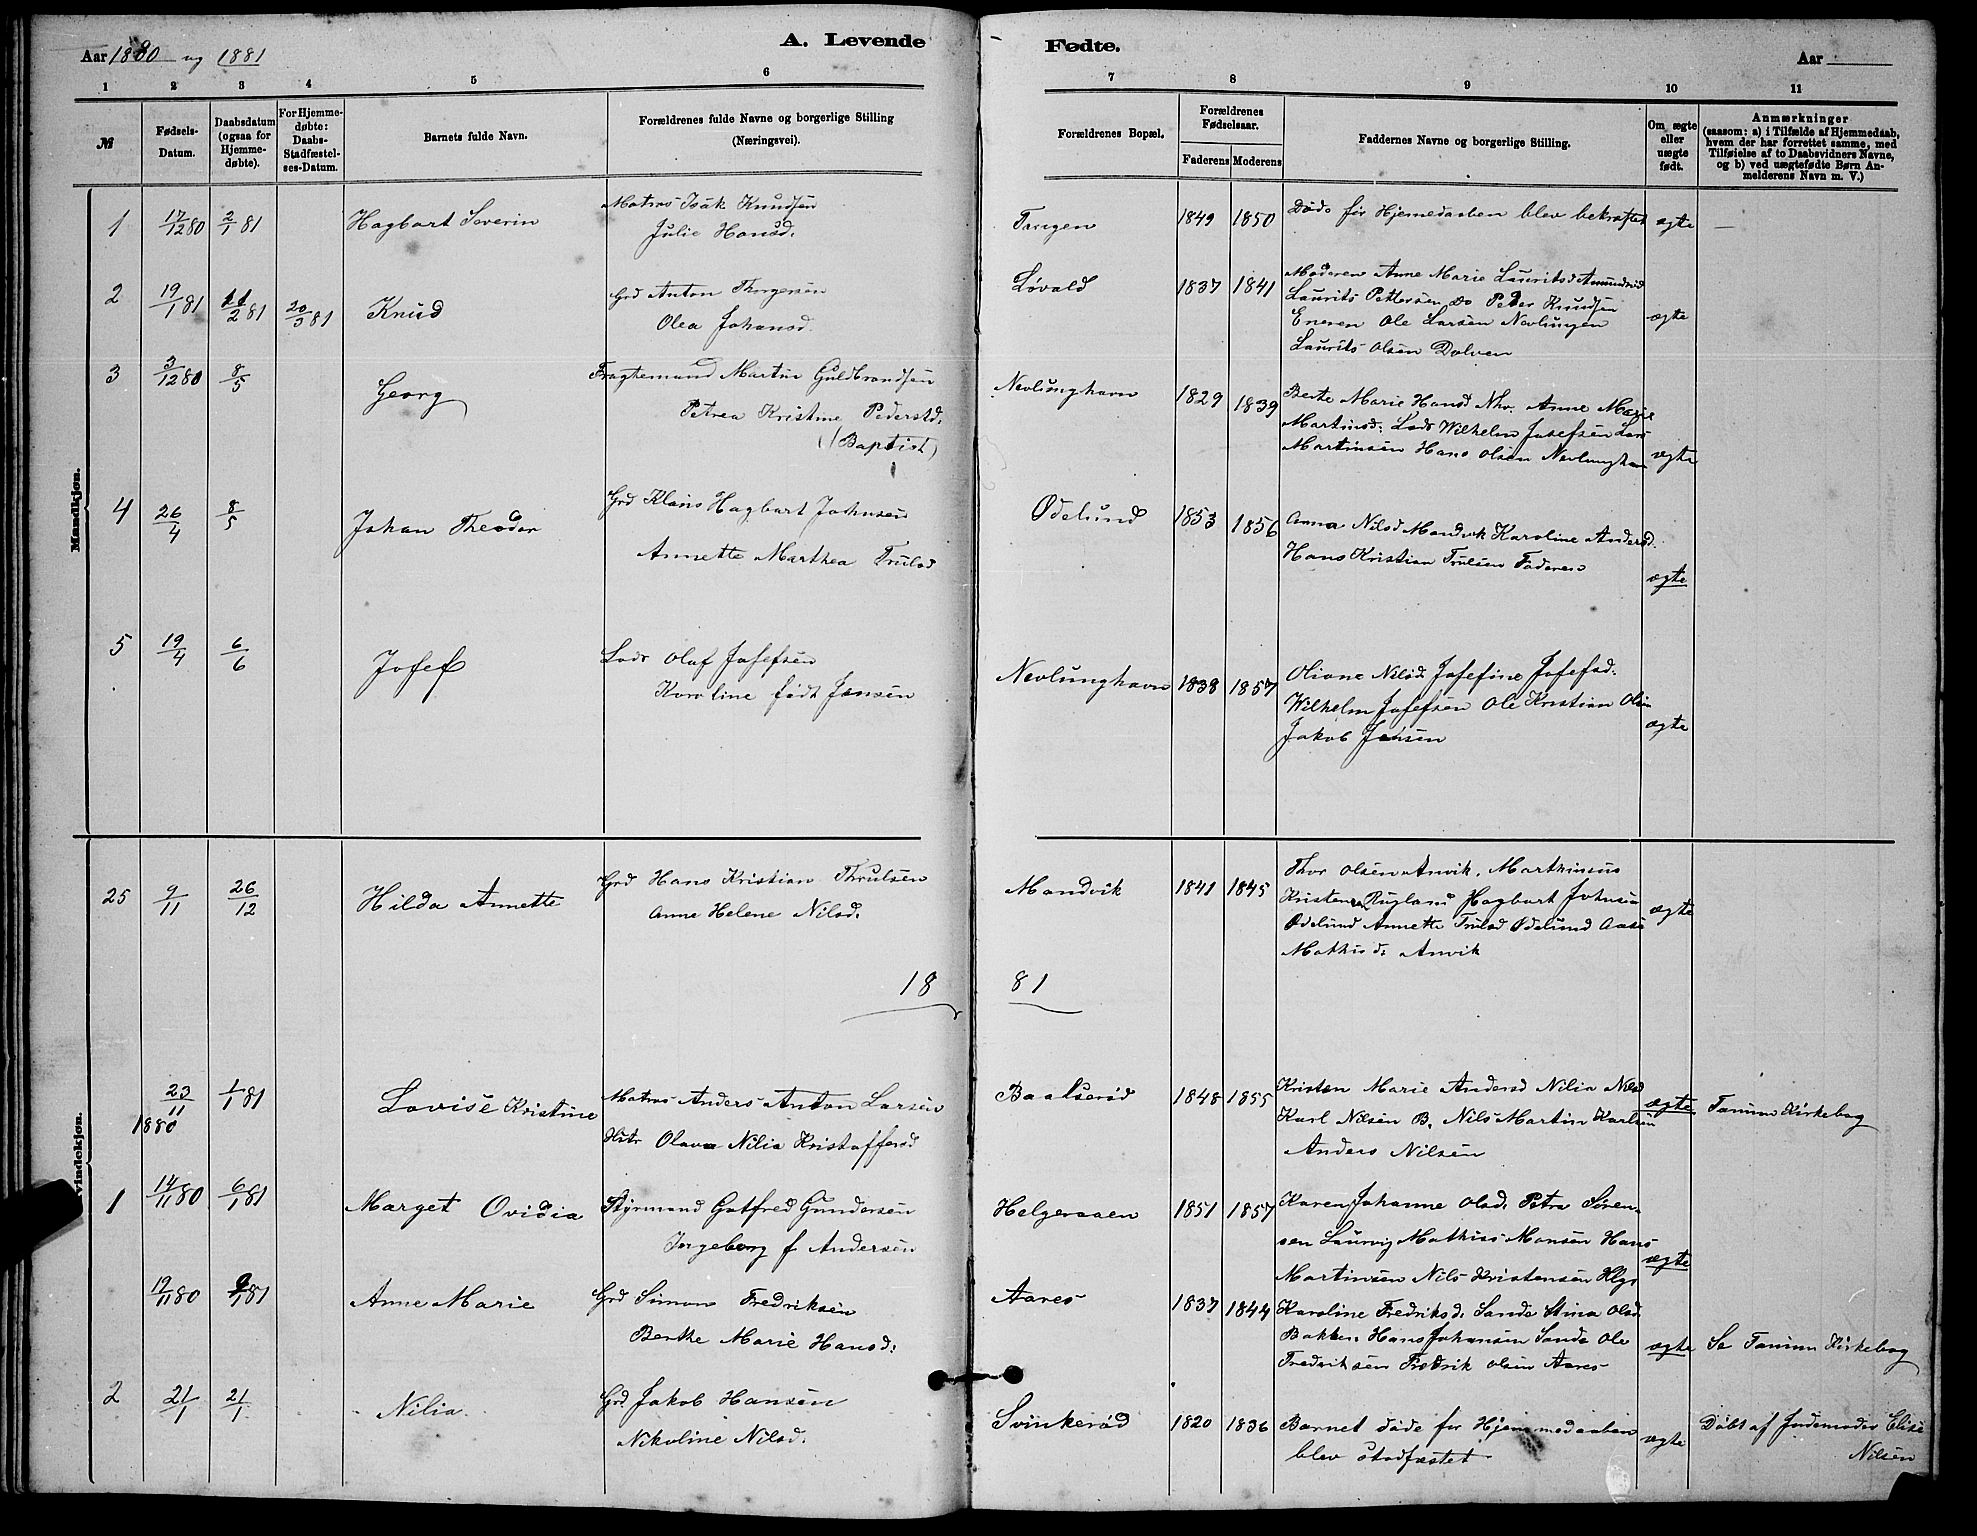 Aar 1880 og 1881
A. Levende Fødte.
Aar
1 2 3 4 5 6 7 8 9 10 11
№
Fødsels-Datum.
Daabsdatum (ogsaa for Hjemme-døbte).
For Hjemme-døbte: Daabs-Stadfæstel-ses-Datum.
Barnets fulde Navn.
Forældrenes fulde Navne og borgerlige Stilling
(Næringsvei).
Forældrenes Bopæl.
Forældrenes Fødselsaar.
Faderens Moderens
Faddernes Navne og borgerlige Stilling.
Om ægte eller uægte født.
Anmærkninger
(saasom: a) i Tilfælde af Hjemmedaab,
hvem der har forrettet samme, med
Tilføielse af to Daabsvidners Navne,
og b) ved uægtefødte Børn An-
melderens Navn m. V.)
Mandkjøn.
1 17/12 80 2/1 81 Hagbart Severin
Matros Isak Knudsen
Julie Hansd.
1849 1850 Døde før Hjemedaaben blev bekræftet ægte
2 19/1 81 11/2 81 20/3 81 Knud
Grd Anton Thorgersen
Olea Johansd.
Løvald 1837 1841
Moderen Anne Marie Lauritsd Amundrød
Laurits Pettersen do Peder Knudsen
Eneren Ole Larsen Nevlungen
Laurits Olsen Dolven
ægte
3 3/12 80 8/5 Georg
Fragtemand Martin Guldbrandsen
Petrea Kristine Pedersd.
(Baptist)
Nevlunghavn 1829 1839
Berte Marie Hansd Nhv. Anne Marie
Martinsd: Lods Wilhelm Josefsen Lars
Martinsen Hans Olsen Nevlunghavn
ægte
4 26/4 8/5 Johan Theodor
Grd Klaus Hagbart Johnsen
Annette Marthea Trulsd
Ødelund 1853 1856
Anna Nilsd Mandvik Karoline Andersd.
Hans Kristian Trulsen Faderen
ægte
5 19/4 6/6 Josef
Lods Olaf Josefsen
Karoline født Jansen
Nevlunghavn 1838 1857
Oliane Nilsd Josefine Josefsd.
Wilhelm Josefsen Ole Kristian Olsen
Jakob Jansen
ægte
25 9/11 26/12 Hilda Annette
Grd Hans Kristian Thrulsen
Anne Helene Nilsd.
Mandvik 1841 1845
Thor Olsen Anvik. Marthinius
Kristensen Rugland Hagbart Johnsen
Ødelund Annette Trulsd Ødelund Aase
Mathisd. Anvik
ægte
1881
Kvindekjøn.
23/11 1880 1/1 81 Lovise Kristine
Matros Anders Anton Larsen
Hstr Olava Nilia Kristoffersd
Baalserød 1848 1855
Kristen Marie Andersd Nilia Nilsd
Karl Nilsen B. Nils Martin Karlsen
Anders Nilsen
ægte Tanum Kirkebog
1 14/11 80 6/1 81 Marget Ovidia
Styrmand Gotfred Gundersen
Ingeborg f Andersen
Helgeraaen 1851 1857
Karen Johanne Olsd. Petra Søren-
sen Laurvig Mathias Monsen Hans
Martinsen Nils Kristensen Hlgr
ægte
19/11 80 9/1 81 Anne Marie
Grd Simon Fredriksen
Berthe Marie Hansd.
Aares 1837 1844
Karoline Fredriksd. Sande Stina Olsd.
Bakken. Hans Johansen Sande Ole
Fredriksen Fredrik Olsen Aares
ægte Se Tanum Kirkebog
2 21/1 21/1 Nilia.
Grd Jakob Hansen
Nikoline Nilsd.
Svinkerød 1820 1836
Barnet døde før Hjemmedaaben
blev stadfæstet
ægte
Døbt af Jordemoder Elise
Nilsen